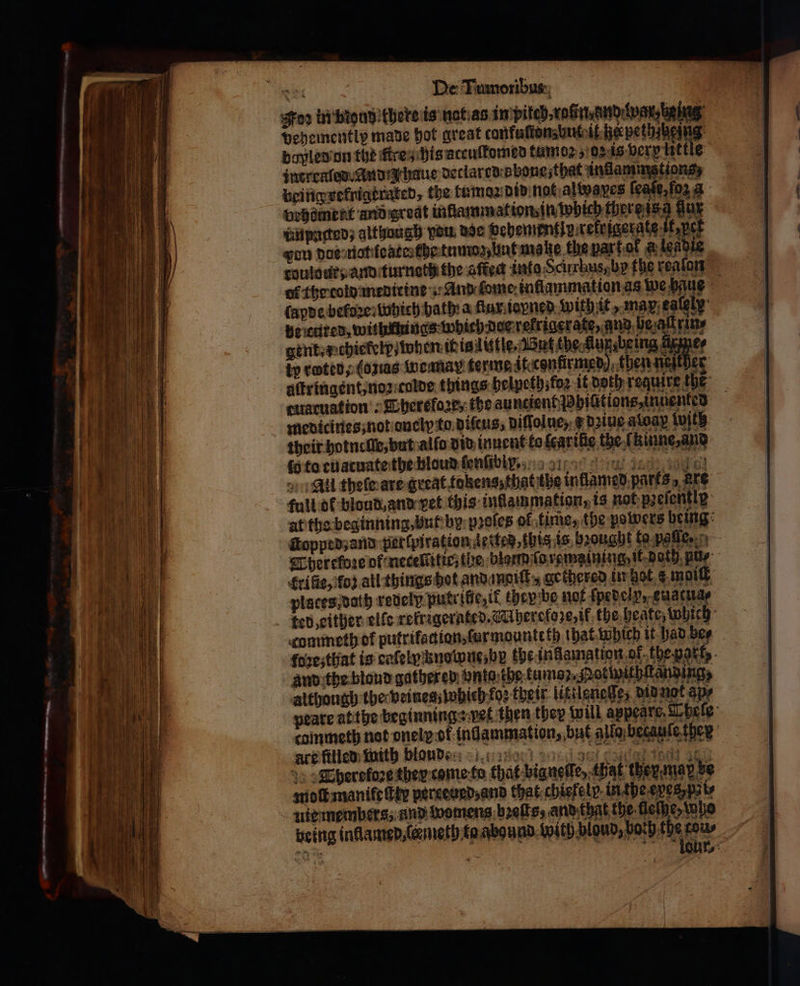 De Tumoribus.
For in bloud there is not as in pitch, rosin, and wax, being
vehemently made hot great confusion, but if he peth, being
boyled on the fire, his accustomed tumor, or is very little
increased. And I haue declared aboue, that inflammations,
being refrigerated, the tumor did not alwayes cease, for a
vehement and great inflammation, in which there is a flux
impacted, although you doe vehemently refrigerate it, yet
you doe not seace the tumor, but make the part of a leadie
coulour, and turneth the affect into Scirrhus, by the reason
of the cold medicine. And some inflammation as we haue
sayde before, which hath a flux ioyned with it, may easely
be cured, with things which doe refrigerate, and be astrin-
gent, & chiefely, when it is little. But the flux, being firme-
ly rooted, (or as we may terme it, confirmed), then neither
astringent, nor colde things helpeth, for it doth require the
euacuation. Therefore, the auncient Phisitions, inuented
medicines, not onely to discus, dissolue, & driue away with
their hotnesse, but also did inuent to scarifie the skinne, and
so to euacuate the bloud sensibly.
All these are great tokens, that the inflamed parts, are
full of bloud, and yet this inflammation, is not presently
at the beginning, but by proces of time, the powers being
stopped, and perspiration letted, this is brought to passe.
Therefore of necessitie, the bloud so remaining, it doth pu-
trifie, for all things hot and moist, gethered in hot & moist
places, doth redely putrifie, if they be not spedely, euacua-
ted, either else refrigerated. Wherefore, if the heate, which
commeth of putrifaction, surmounteth that which it had be-
fore, that is easely knowne, by the inflamation of the part,
and the bloud gathered vnto the tumor. Notwithstanding,
although the veines, which for their litilenesse, did not ap-
peare at the beginning: yet then they will appeare. These
commeth not onely of inflammation, but also, because they
are filled with bloude.
Therefore they come to that bignesse, that they may be
most manifestly perceued, and that chiefely in the eyes, pri-
uie members, and womens brests, and that the fleshe, who
being inflamed, seemeth to abound with bloud, both the cou-
lour,